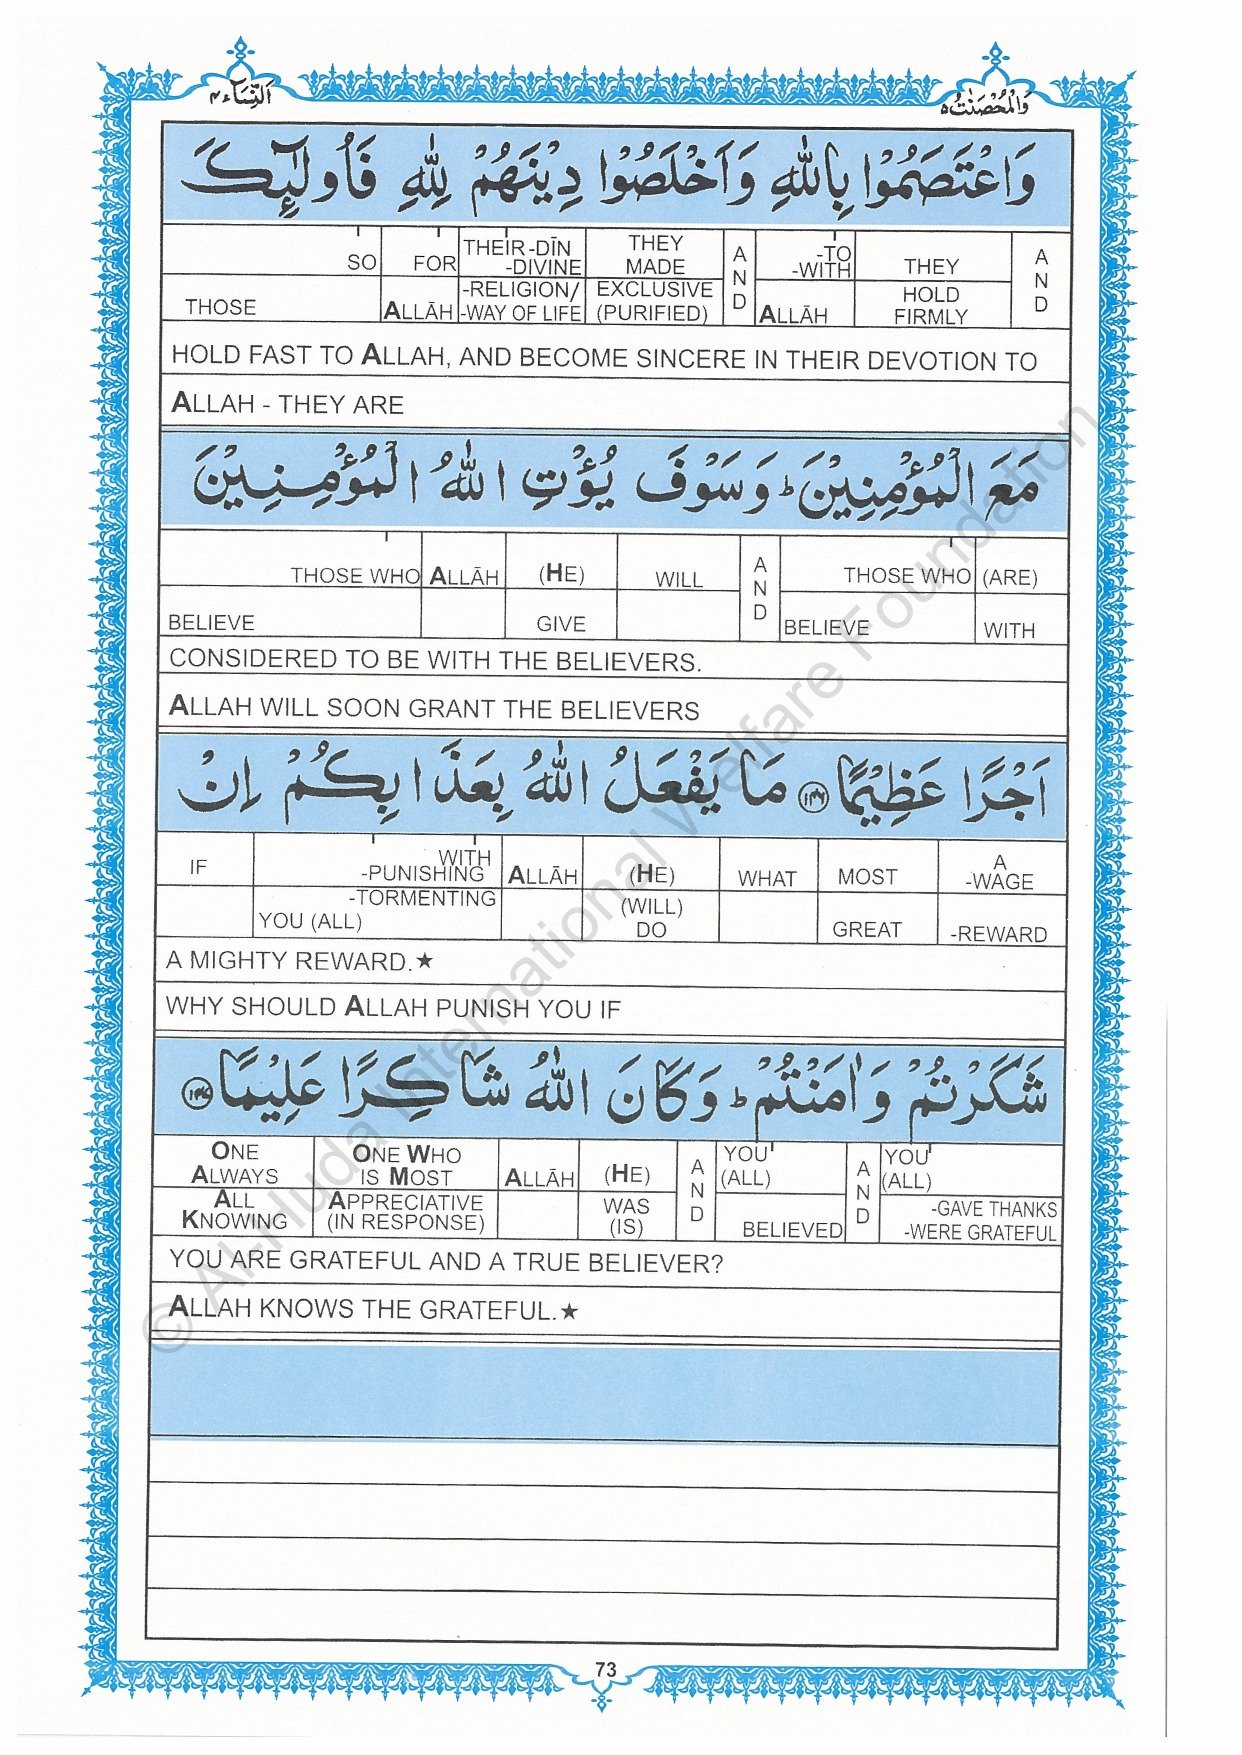 النِّسَآء ٤
وَالْمُحْصَنٰتُ ٥
وَاعْتَصَمُوْا بِاللّٰهِ وَاَخْلَصُوْا دِيْنَهُمْ لِلّٰهِ فَاُولٰٓئِكَ
SO FOR THEIR-DĪN -DIVINE THEY MADE AND -TO -WITH THEY AND
THOSE ALLĀH -RELIGION/ -WAY OF LIFE EXCLUSIVE (PURIFIED) ALLĀH HOLD FIRMLY
HOLD FAST TO ALLAH, AND BECOME SINCERE IN THEIR DEVOTION TO
ALLAH - THEY ARE
مَعَ الْمُؤْمِنِيْنَ ؕ وَسَوْفَ يُؤْتِ اللّٰهُ الْمُؤْمِنِيْنَ
THOSE WHO ALLĀH (HE) WILL AND THOSE WHO (ARE)
BELIEVE GIVE BELIEVE WITH
CONSIDERED TO BE WITH THE BELIEVERS.
ALLAH WILL SOON GRANT THE BELIEVERS
اَجْرًا عَظِيْمًا ١٤٦ مَا يَفْعَلُ اللّٰهُ بِعَذَابِكُمْ اِنْ
IF WITH -PUNISHING ALLĀH (HE) WHAT MOST A -WAGE
-TORMENTING YOU (ALL) (WILL) DO GREAT -REWARD
A MIGHTY REWARD.★
WHY SHOULD ALLAH PUNISH YOU IF
شَكَرْتُمْ وَاٰمَنْتُمْ ؕ وَكَانَ اللّٰهُ شَاكِرًا عَلِيْمًا ١٤٧
ONE ALWAYS ONE WHO IS MOST ALLĀH (HE) AND YOU (ALL) AND YOU (ALL)
ALL KNOWING APPRECIATIVE (IN RESPONSE) WAS (IS) BELIEVED -GAVE THANKS -WERE GRATEFUL
YOU ARE GRATEFUL AND A TRUE BELIEVER?
ALLAH KNOWS THE GRATEFUL.★
73
© Al-Huda International Welfare Foundation